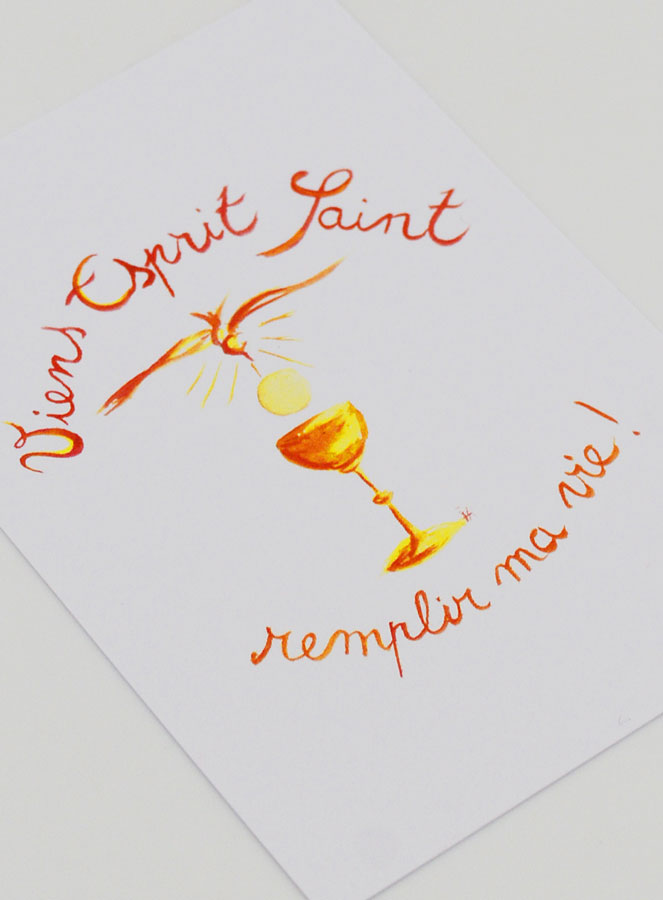 Viens Esprit Saint
remplir ma vie!